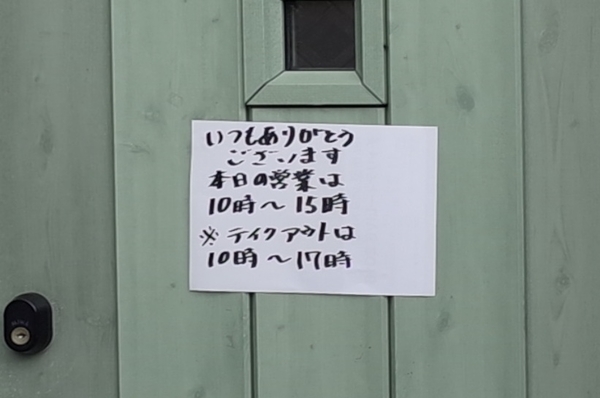 いつもありがとう
ございます
本日の営業は
10時～15時
※テイクアウトは
10時～17時